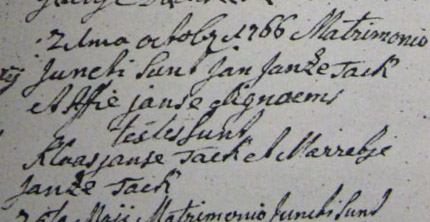 21ma octob 1766 Matrimonio
Juncti Sunt Jan Janze Tack
et Affie janse
testes sunt
Klaas janse Tack et Marretje
Janze Tack
Maij Matrimonio Juncti Sunt